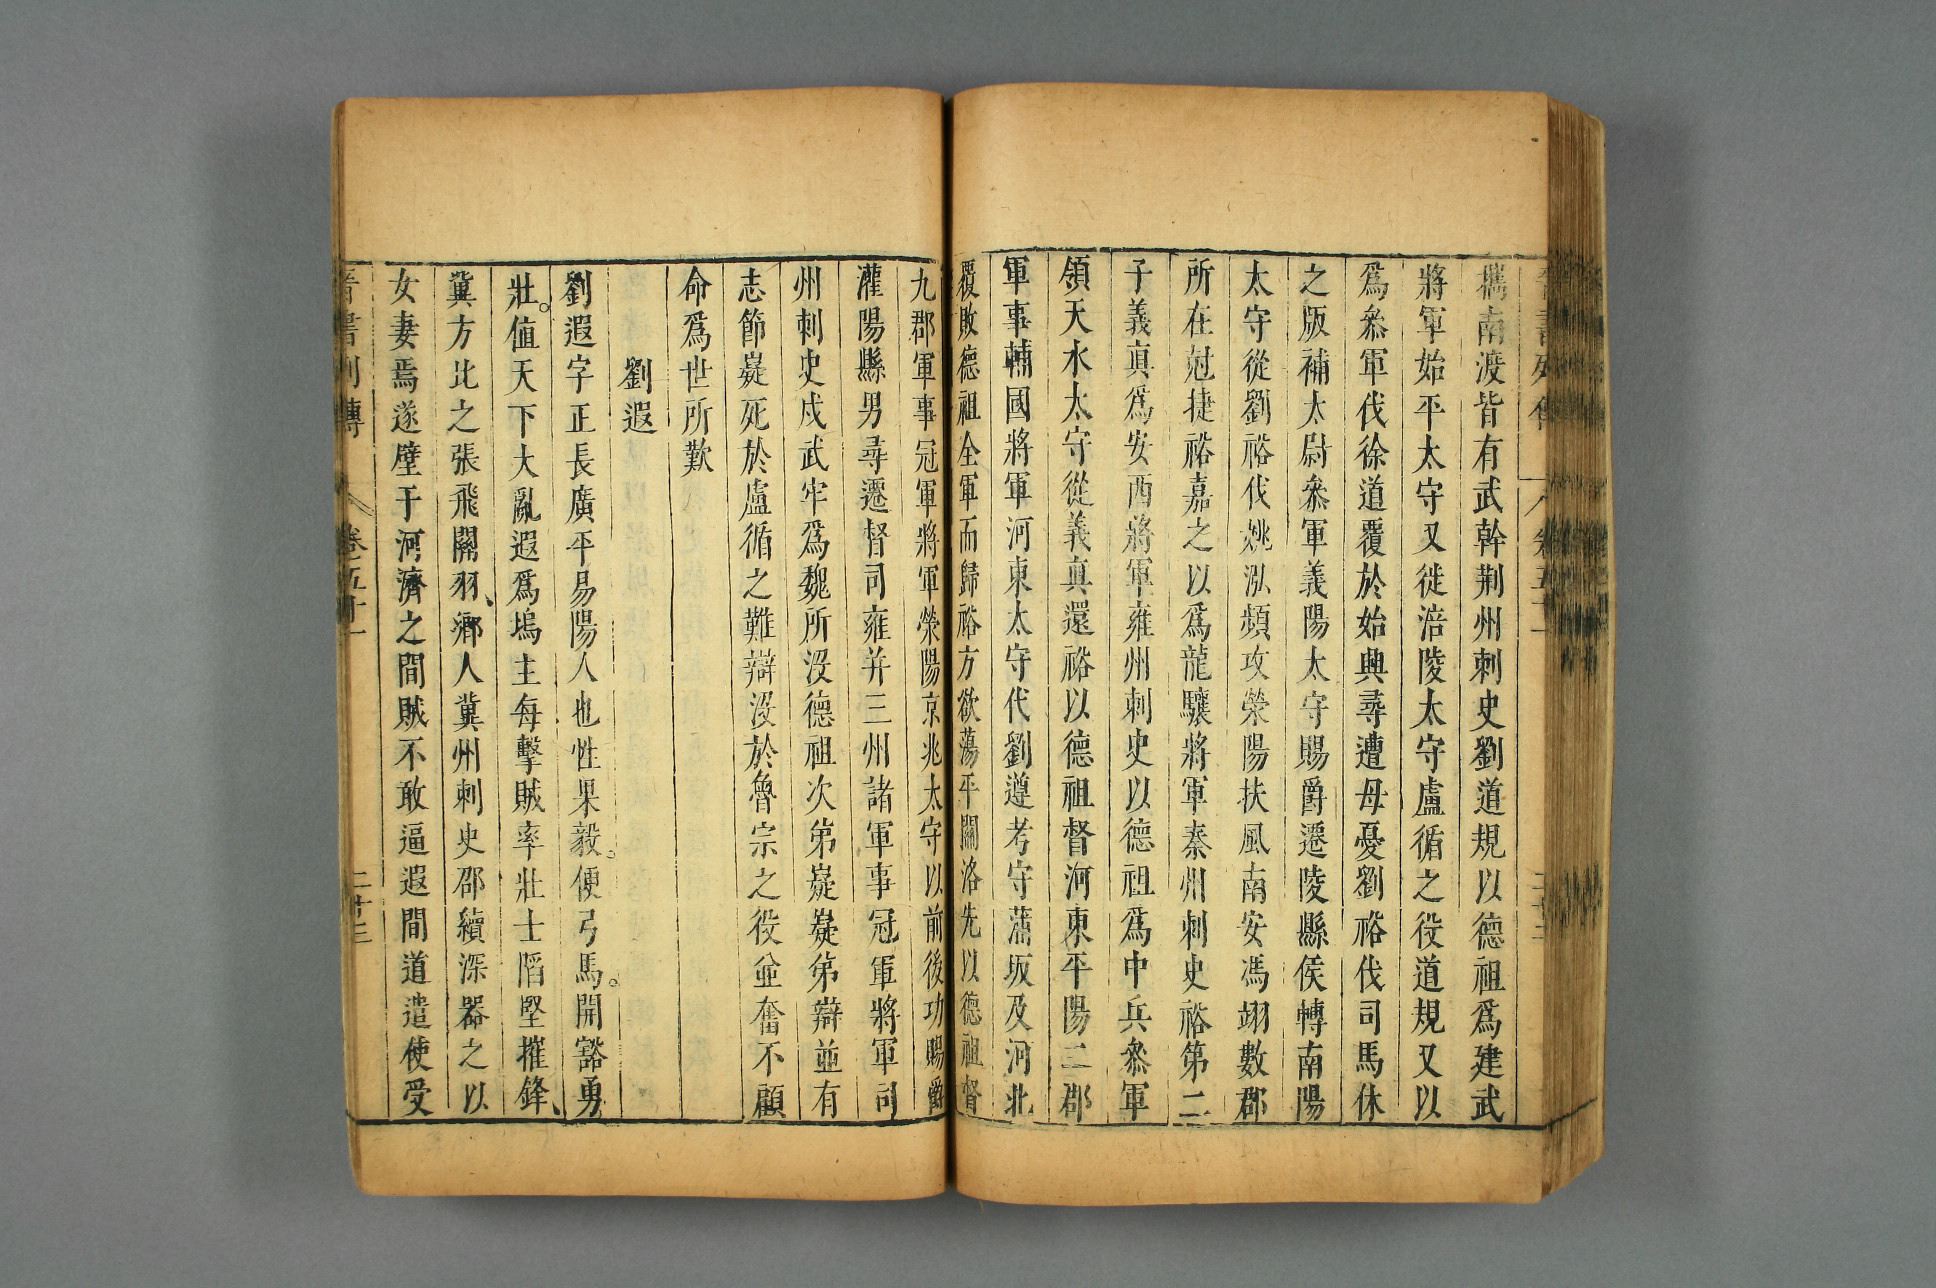 攜南渡皆有武幹荆州刺史劉道規以德祖爲建武
將軍始平太守又徙涪陵太守盧循之役道規又以
爲叅軍伐徐道覆於始興尋遭母憂劉裕伐司馬休
之版補太尉叅軍義陽太守賜爵遷陵縣侯轉南陽
太守從劉裕伐姚泓頻攻滎陽扶風南安馮翊數郡
所在尅捷裕嘉之以爲龍驤將軍秦州刺史裕第二
子義眞爲安西將軍雍州刺史以德祖爲中兵叅軍
領天水太守從義眞還裕以德祖督河東平陽二郡
軍事輔國將軍河東太守代劉遵考守蒲坂及河北
覆敗德祖全軍而歸裕方欲蕩平關洛先以德祖督
九郡軍事冠軍將軍滎陽京兆太守以前後功賜爵
灌陽縣男尋遷督司雍并三州諸軍事冠軍將軍司
州刺史戍武牢爲魏所没德祖次弟嶷嶷弟辯並有
志節嶷死於盧循之難辯没於魯宗之役並奮不顧
命爲世所歎
劉遐
劉遐字正長廣平易陽人也性果毅。便弓馬。開豁勇
壯。值天下大亂遐爲塢主每擊賊率壯士陷堅摧鋒、
冀方比之張飛關羽、鄉人冀州刺史邵續深器之以
女妻焉遂壁于河濟之間賊不敢逼遐間道遣使受
晉書列傳 卷之五十一 二十三